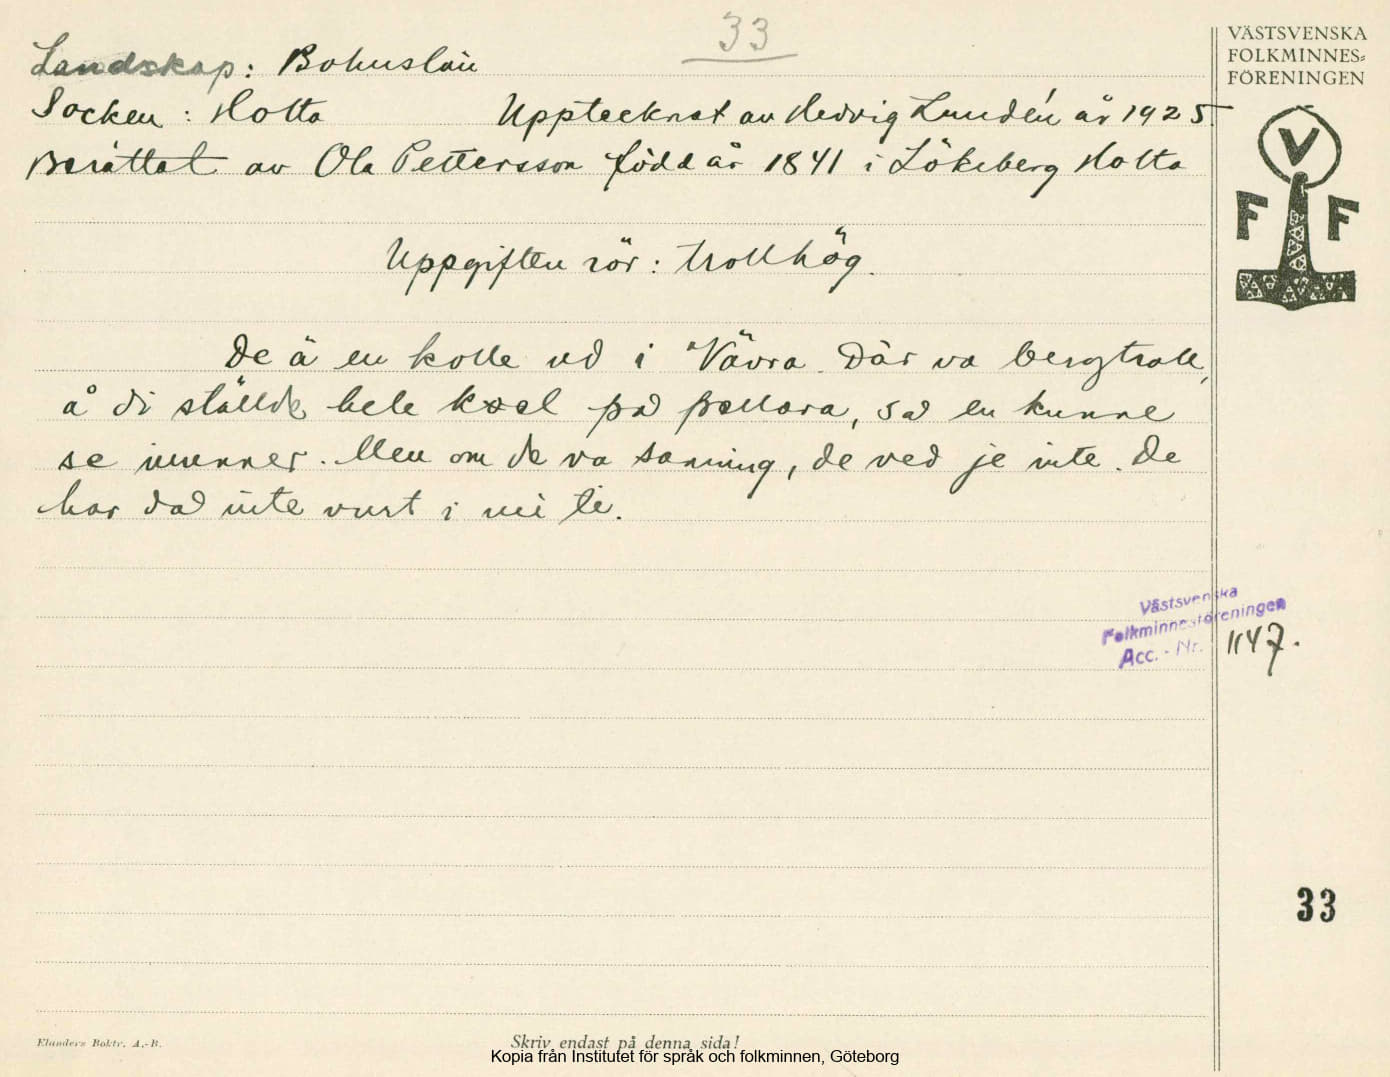 33
Landskap: Bohuslän
Socken: Holta Upptecknat av Hedvig Lundén år 1925.
Berättat av Ola Pettersson född år 1841 i Lökeberg Holta
Uppgiften rör: trollhög.
De ä en kolle ud i Vävra. Där va bergtroll,
å di ställde hele på, sad en kunne
se inunner. Men om de va sanning, de ved je inte. De
har dad inte vurt i mi ti.
VÄSTSVENSKA
FOLKMINNES=
FÖRENINGEN
V
F F
Västsvenska
Folkminnesföreningen
Acc. - Nr. 1147.
33
Elanders Boktr. A.-B.
Skriv endast på denna sida!
Kopia från Institutet för språk och folkminnen, Göteborg